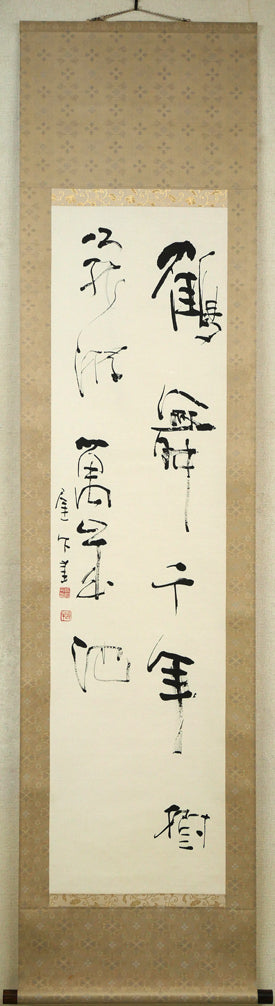 鶴舞千年樹
龜游萬年池